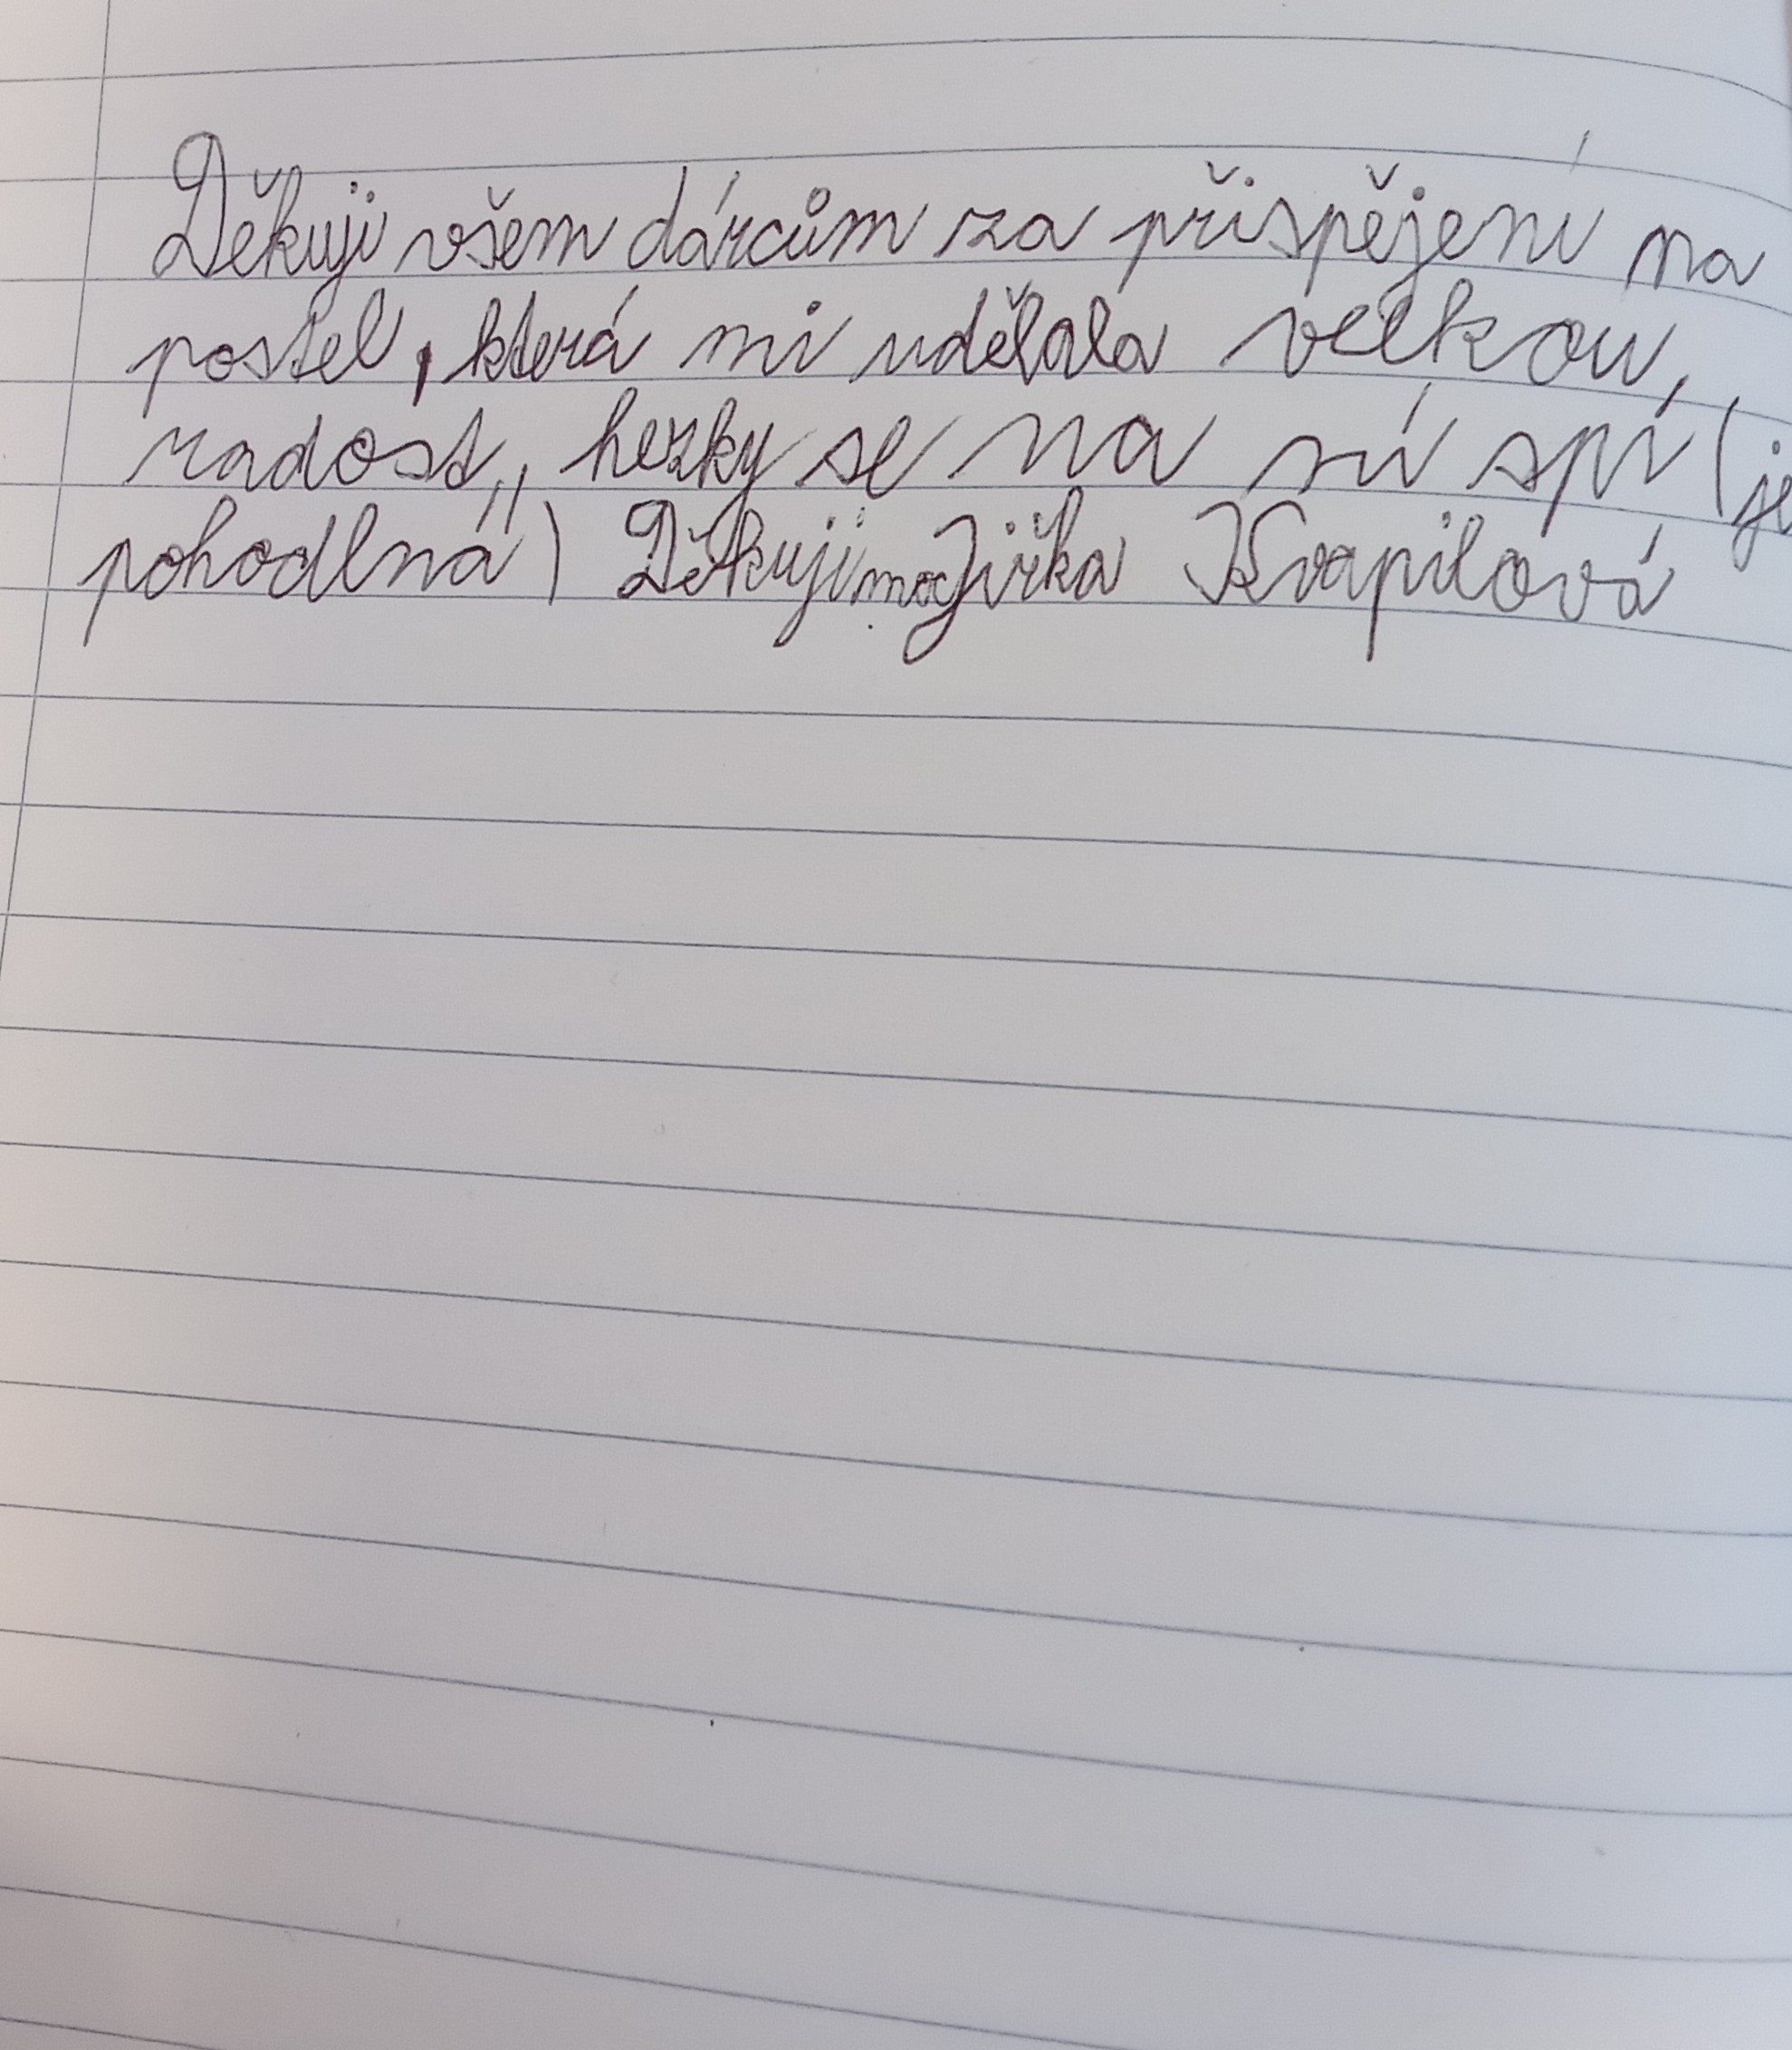 Děkuji všem dárcům za přispějení na
postel, která mi udělala velkou,
radost, hezky se na ní spí (je
pohodlná) Děkuji moc Jiřka Kvapilová